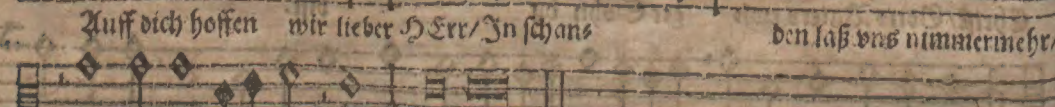 Auff dich hoffen wir lieber HErr/ In schan⸗ den laß vns nimmermehr/